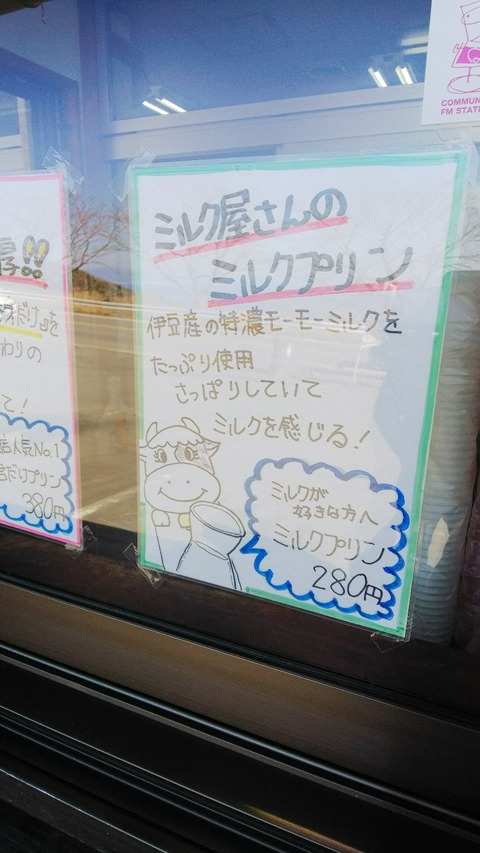 ミルク屋さんの
ミルクプリン
伊豆産の特濃モーモーミルクを
たっぷり使用
さっぱりしていて
ミルクを感じる!
ミルクが
好きな方へ
ミルクプリン
280円
厚!!
だけ』を
わりの
て!
店人気No.1
だけプリン
380円
COMMUN
FM STAT